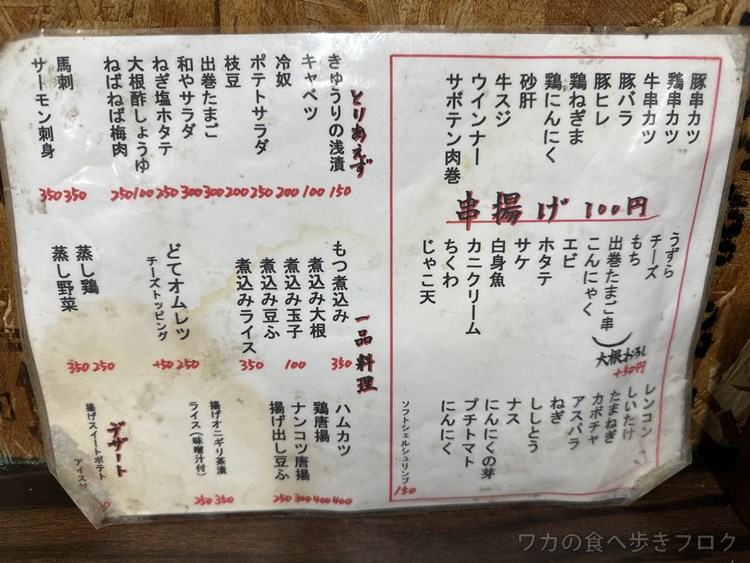 豚串カツ
鶏串カツ
牛串カツ
豚バラ
豚ヒレ
鶏ねぎま
鶏にんにく
砂肝
牛スジ
ウインナー
サボテン肉巻
串揚げ 100円
うずら
チーズ
もち
出巻たまご串
こんにゃく
大根おろし
+50円
エビ
ホタテ
サケ
白身魚
カニクリーム
ちくわ
じゃこ天
レンコン
しいたけ
たまねぎ
カボチャ
アスパラ
ねぎ
ししとう
ナス
にんにくの芽
プチトマト
にんにく
ソフトシェルシュリンプ 150
とりあえず
きゅうりの浅漬 150
キャベツ 100
冷奴 200
ポテトサラダ 250
枝豆 200
出巻たまご 300
和やサラダ 300
ねぎ塩ホタテ 250
大根酢しょうゆ 100
ねばねば梅肉 250
馬刺 350
サーモン刺身 350
一品料理
もつ煮込み 350
煮込み大根
煮込み玉子 100
煮込み豆ふ
煮込みライス 350
どてオムレツ 250
チーズトッピング +50
蒸し鶏 250
蒸し野菜 350
ハムカツ 400
鶏唐揚 400
ナンコツ唐揚 300
揚げ出し豆ふ 250
揚げオニギリ茶漬 350
ライス(味噌汁付) 250
デザート
揚げスイートポテト
アイス
ワカの食べ歩きブログ